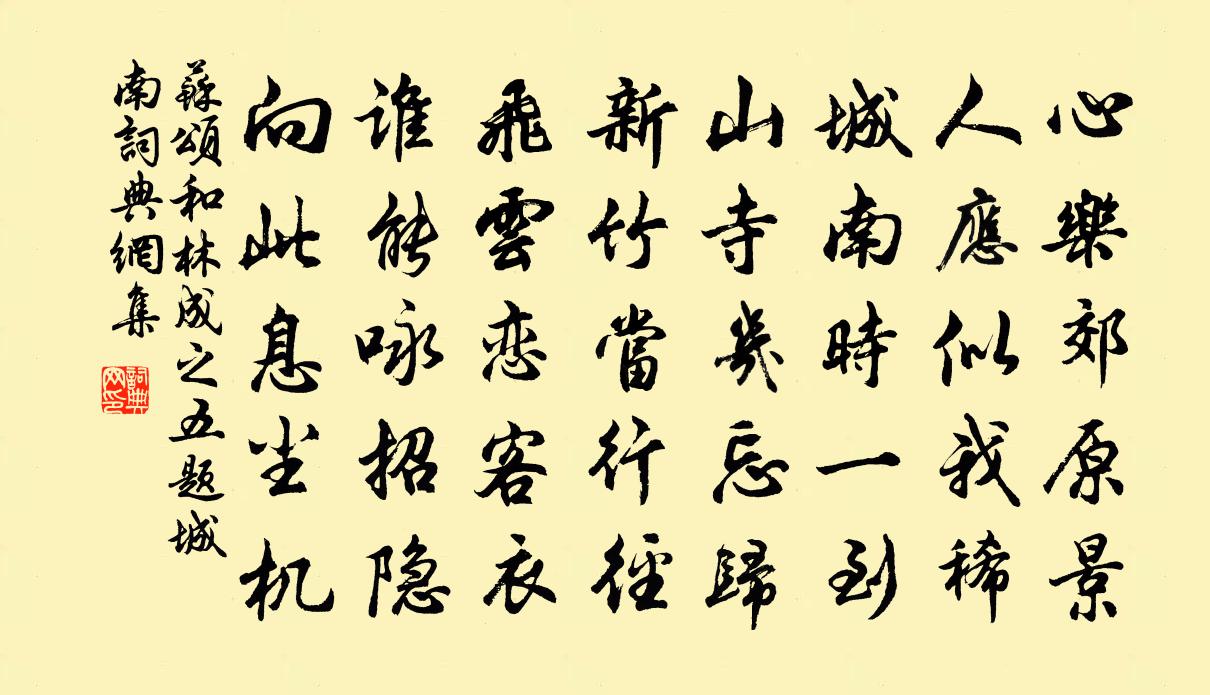 心樂郊原景
人應似我稀
城南時一到
山寺幾忘歸
新竹當行徑
飛雲恋客衣
誰能咏招隐
向此息尘机
蘇頌和林成之五题城
南詞典網集
詞典網印